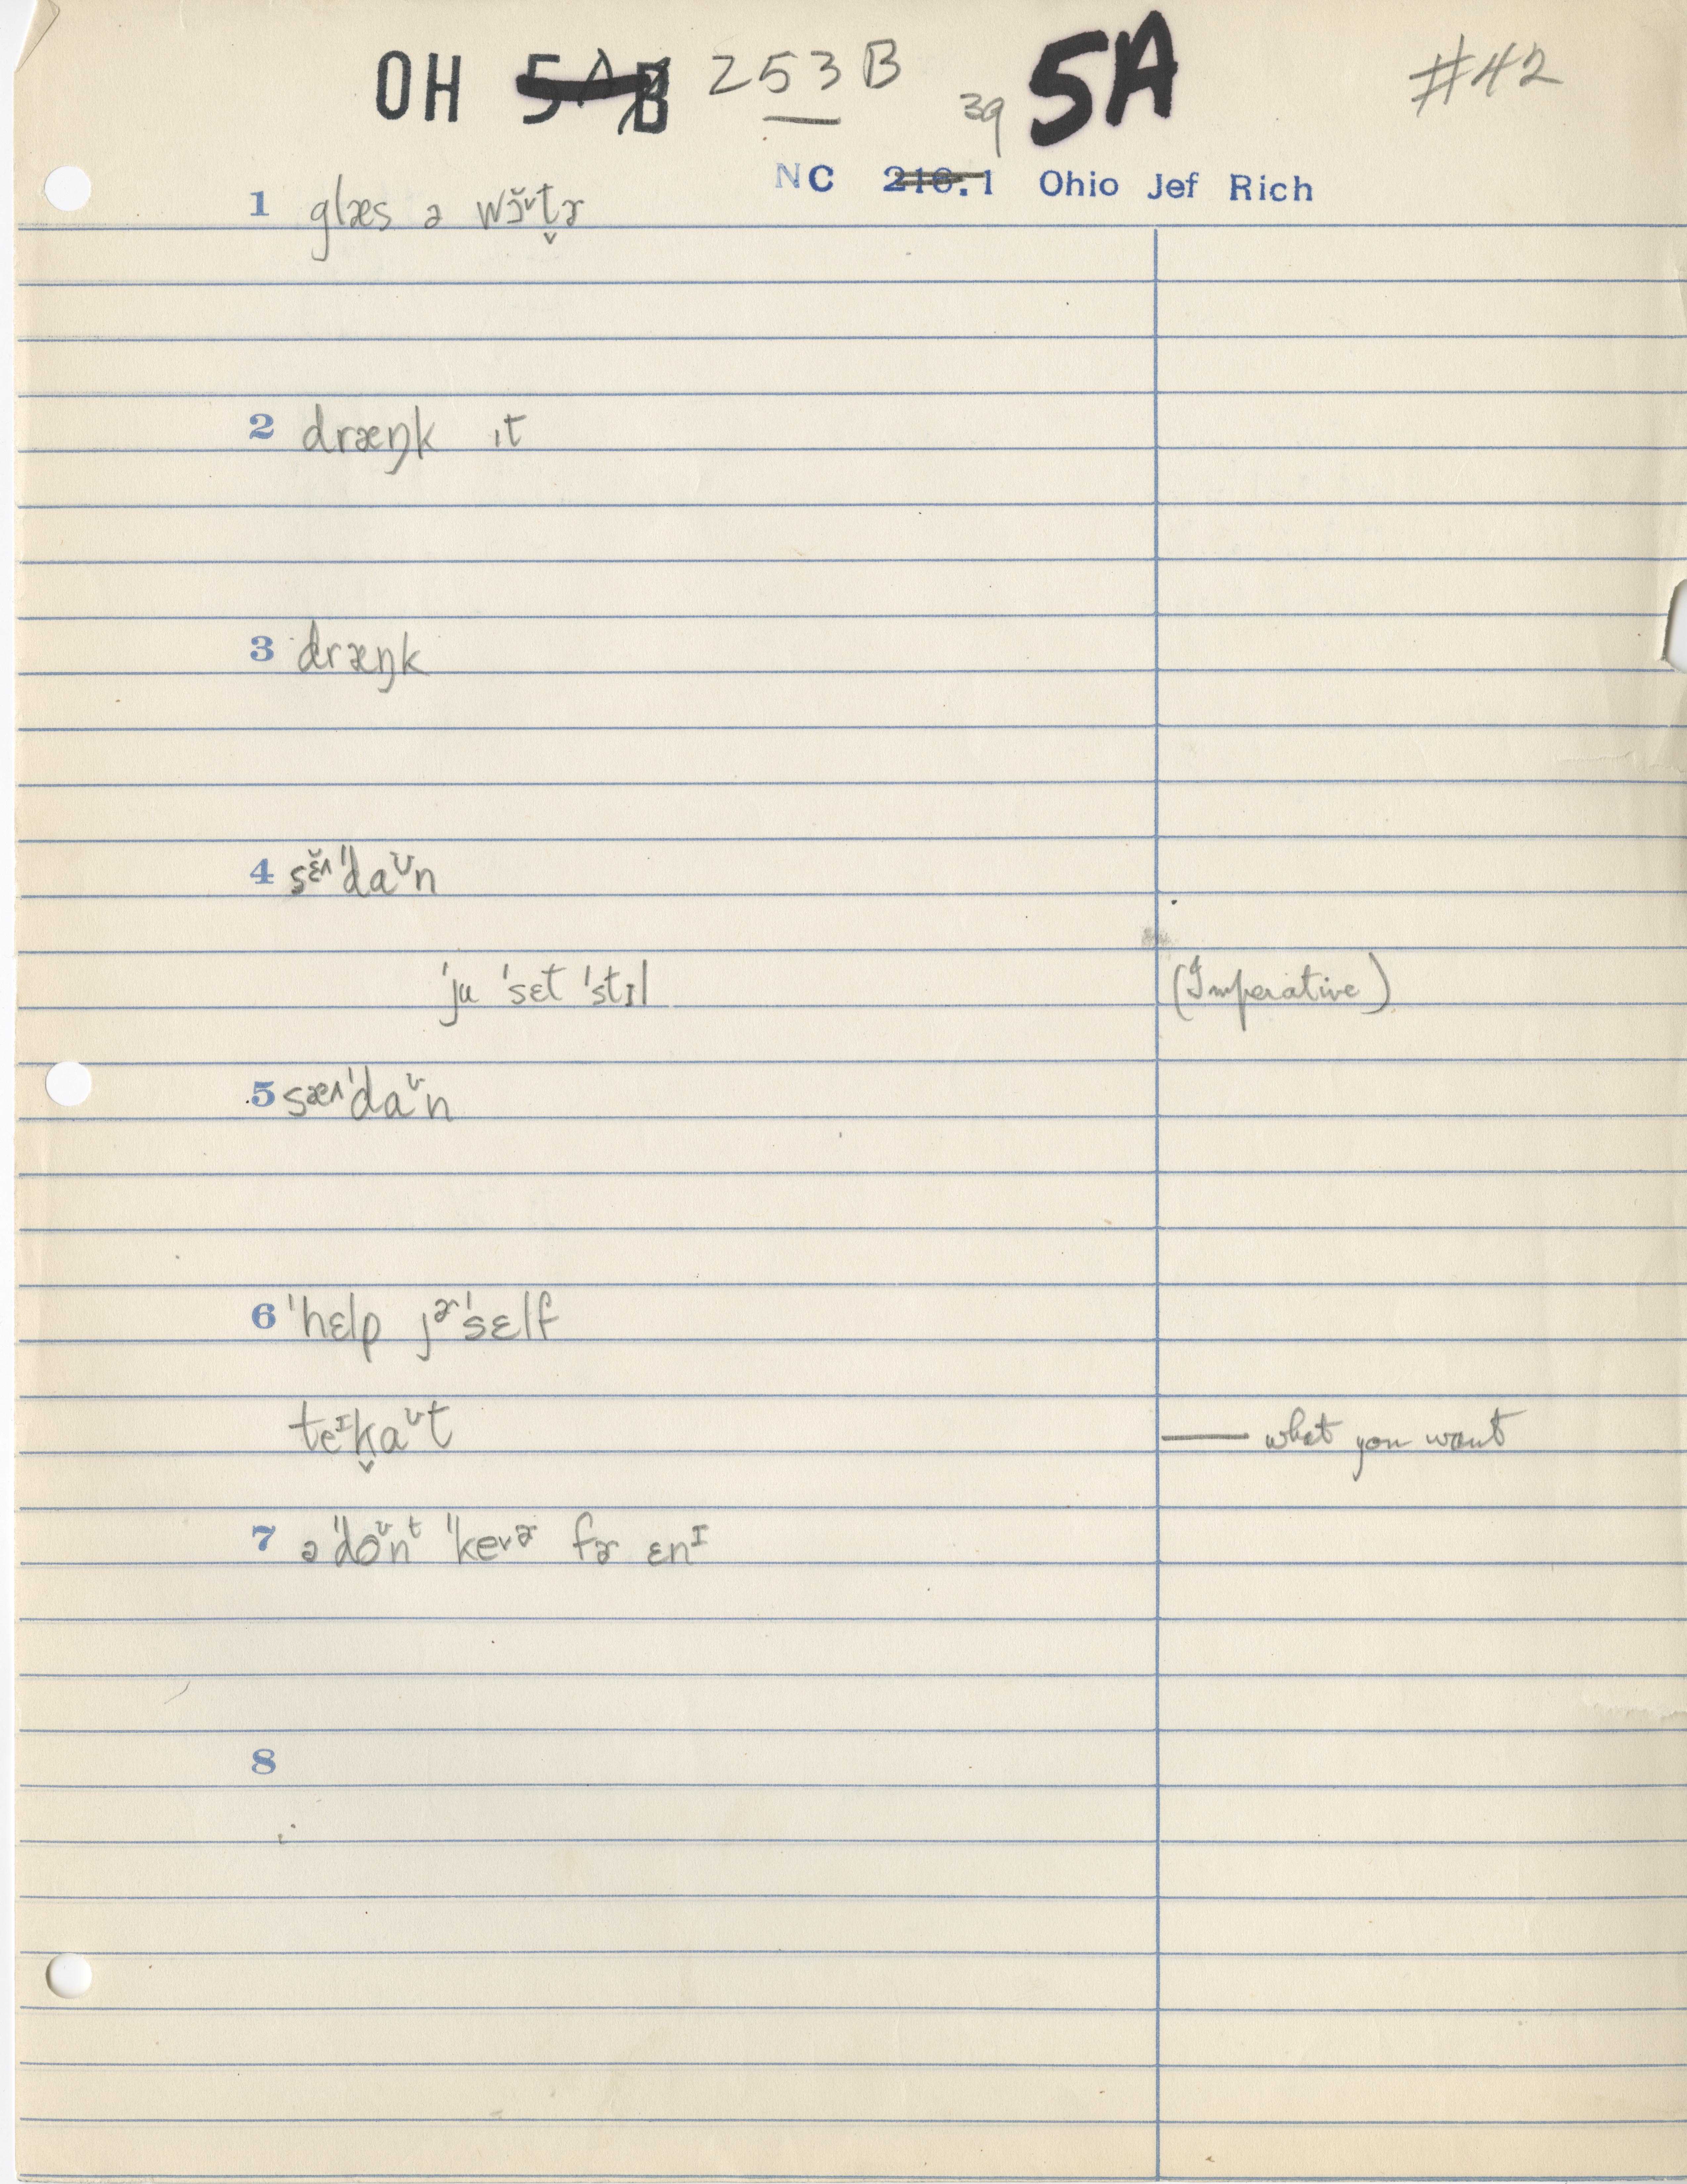 OH 5AB 253B 39 5A #42
NC 216.1 Ohio Jef Rich
1 glæs ə wɔ̆ᵛt̬ɚ
2 dræŋk ɪt
3 dræŋk
4 sɛ̆ᶦ˄ˈˈdaᶷn
ˈju ˈsɛt ˈstɪl (Imperative)
5 sæᶦ˄ˈdaᶷn
6 ˈhɛlp jɚˈsɛlf
teᶦk̬aᶷt — what you want
7 əˈˈdoᶷnᵗ ˈˈke˅ɚ fɚ ɛnᶦ
8